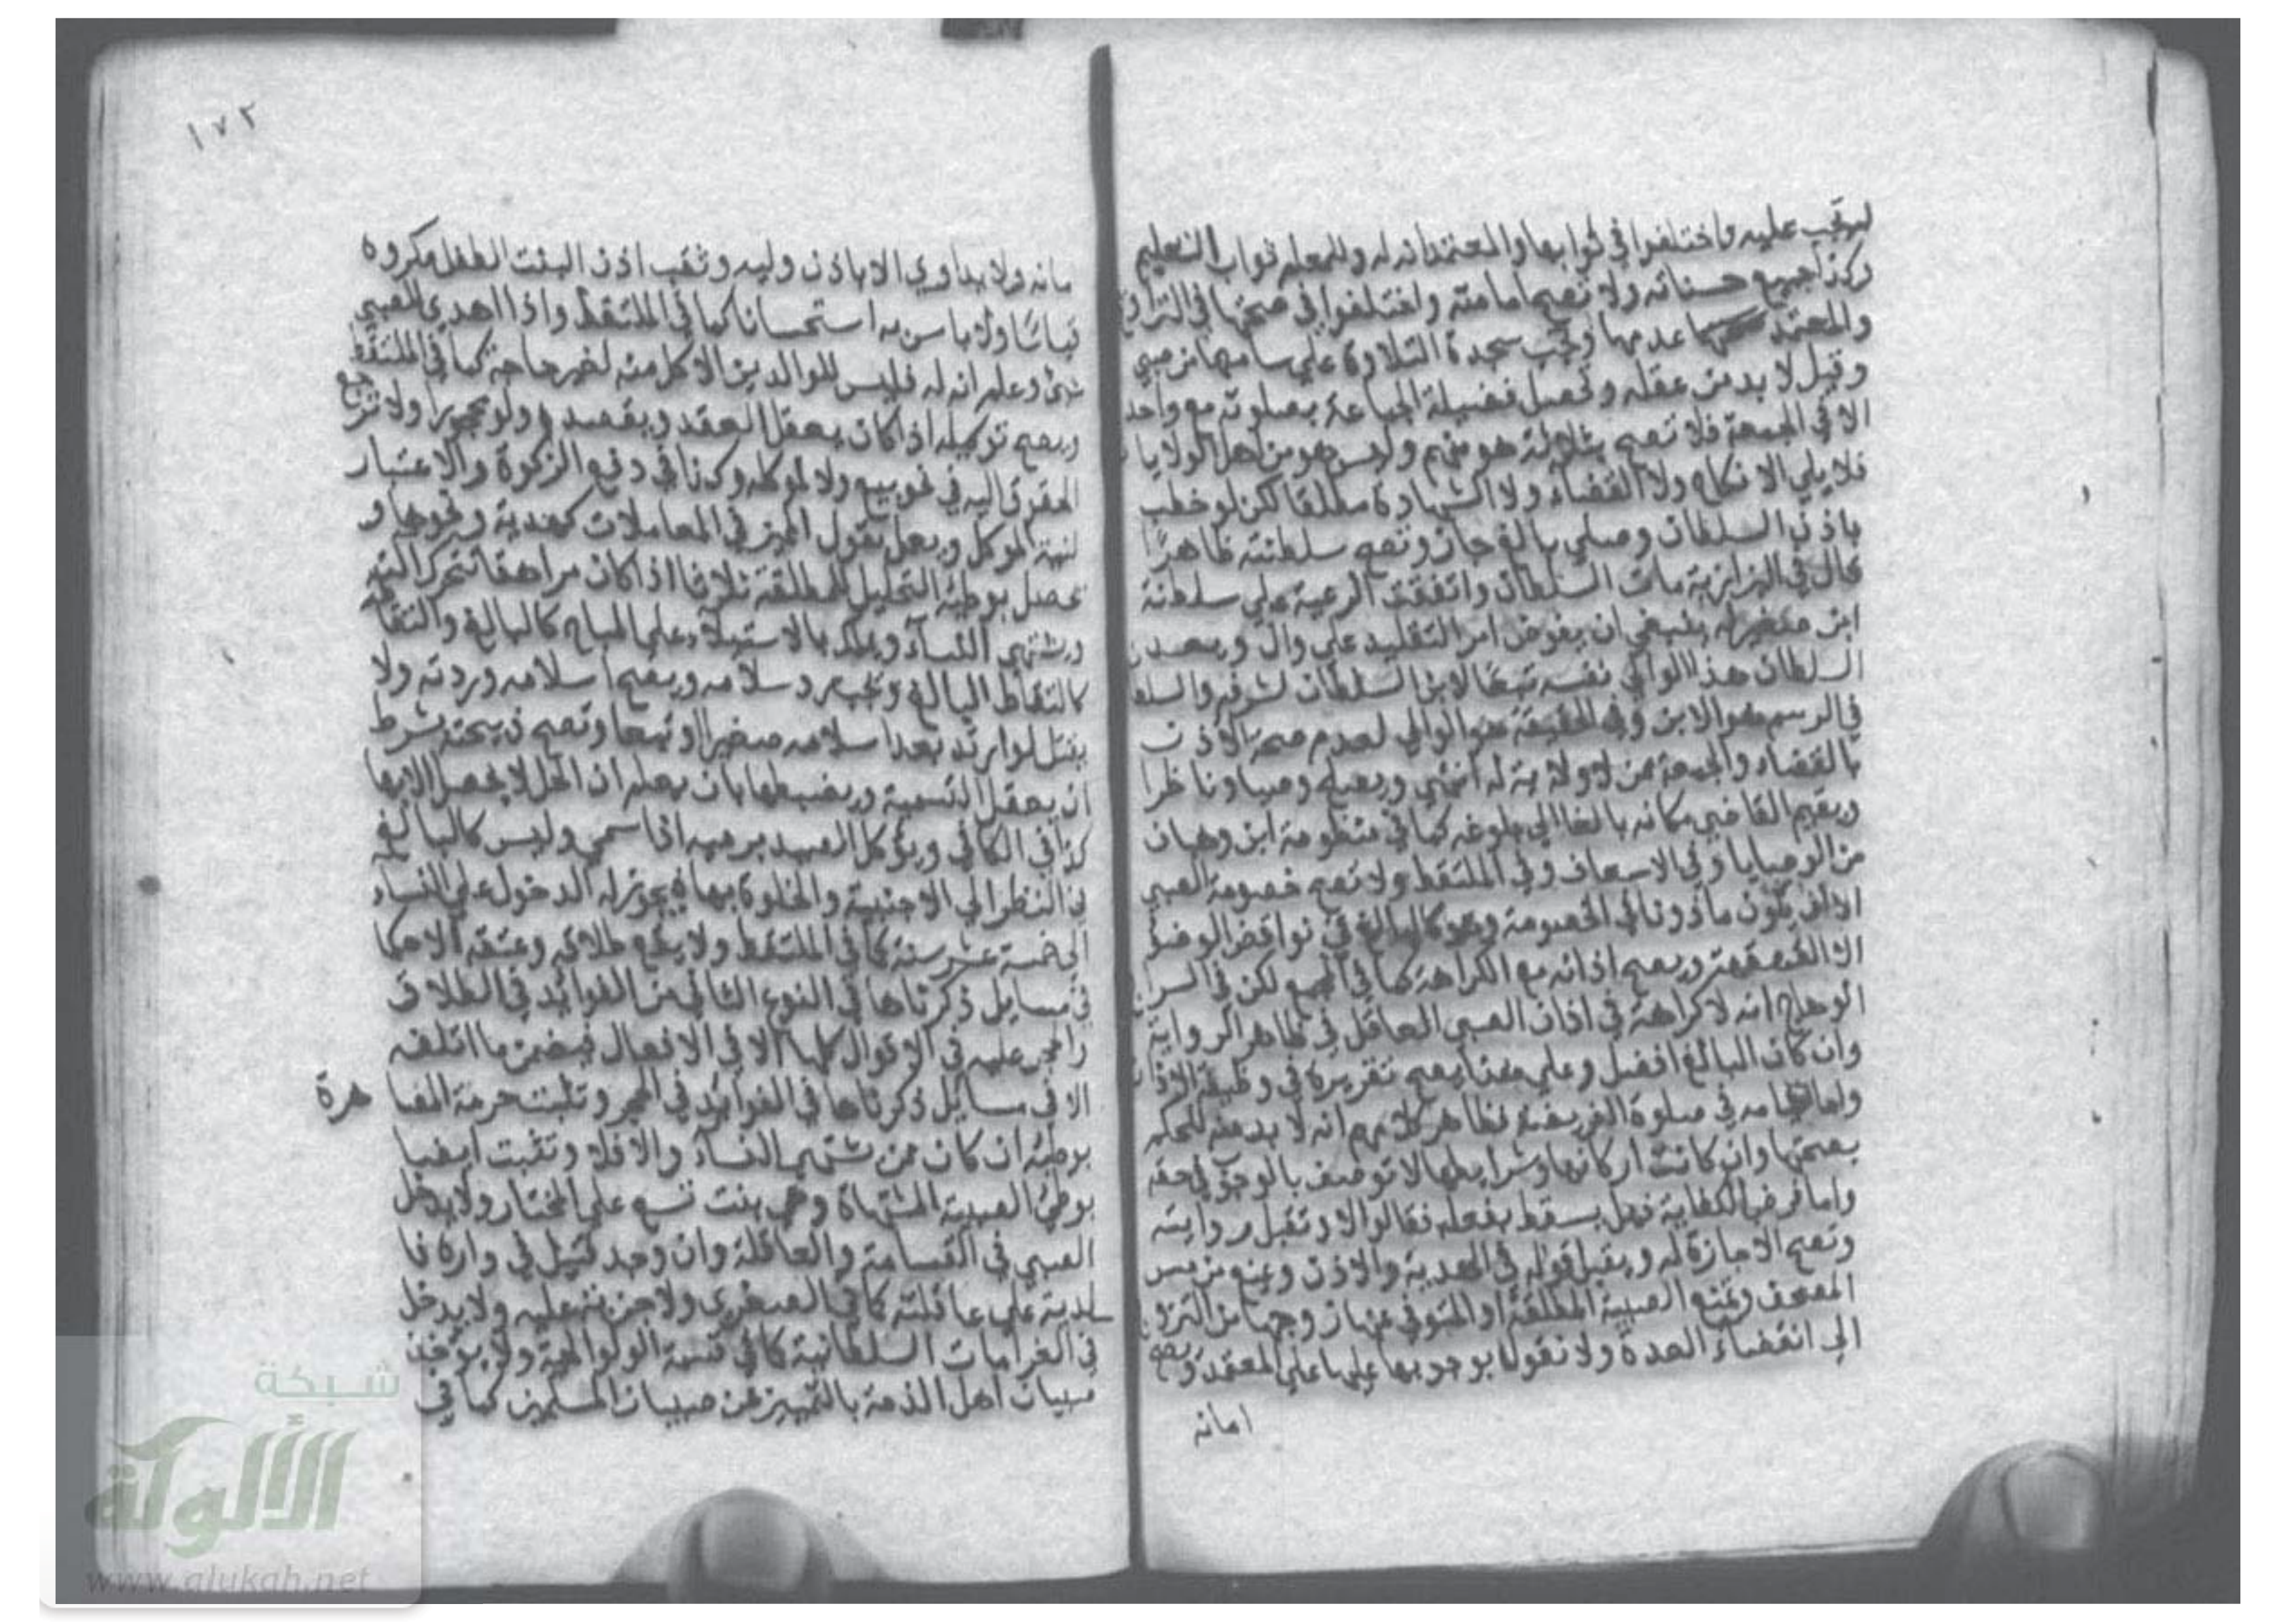 لم تجب عليه واختلفوا في ثوابها والمعتمد انه له وللمعلم ثواب التعليم
وكذا جميع حسناته ولا تصح امامته واختلفوا في صحتها في التراويح
والمعتمد عدمها وتجب سجدة التلاوة على سامعها من صبي
وقيل لا بد من عقله وتحصل فضيلة الجماعة بصلوته مع واحد
الا في الجمعة فلا تصح بثلاثة هو منهم وليس هو من اهل الولايا
فلا يلي الانكاح ولا القضاء ولا الشهادة مطلقا لكن لو خطب
باذن السلطان وصلى بالغ جاز وتصح سلطنته ظاهرا
قال في البزازية مات السلطان واتفقت الرعية على سلطنة
ابن صغير له ينبغي ان يفوض امر التقليد على وال ويعد
السلطان هذا الوالي نفسه تبعا لابن السلطان لشرفه والسلطان
في الرسم هو الابن وفي الحقيقة هو الوالي لعدم صحة الاذن
بالقضاء والجمعة ممن لا ولاية له انتهي ويصلح وصيا وناظرا
ويقيم القاضي مكانه بالغا الى بلوغه كما في منظومة ابن وهبان
من الوصايا وفي الاسعاف وفي الملتقط ولا تصح خصومة الصبي
الا ان يكون ماذونا في الخصومة وهو كالبالغ في نواقض الوضؤ
الا القهقهة ويصح اذانه مع الكراهة كما في المجمع لكن في السراج
الوهاج انه لا كراهة في اذان الصبي العاقل في ظاهر الرواية
وان كان البالغ افضل وعلى هذا يصح تقريره في وظيفة الاذان
واما قيامه في صلوة الفريضة فظاهر كلامهم انه لا بد منه للحكم
بصحتها وان كانت اركانها وشرايطها لا توصف بالوجوب في حقه
واما فرض الكفاية فهل يسقط بفعله فقالوا لا وتقبل روايته
وتصح الاجازة له ويقبل قوله في الهدية والاذن ويمنع من مس
المصحف وتمنع الصبية المطلقة او المتوفي عنها زوجها من التزوج
الى انقضاء العدة ولا نقول بوجوبها عليها على المعتمد ويصح
امانه
١٧٢
مانه ولا يداوي الا باذن وليه وثقب اذن البنت الطفل مكروه
قياسا ولا باس به استحسانا كما في الملتقط واذا اهدي للصبي
شئ وعلم انه له فليس للوالدين الاكل منه لغير حاجة كما في الملتقط
ويصح توكيله اذا كان يعقل العقد ويقصده ولو محجورا ولا ترجع
الحقوق اليه في نحو بيع ولا لموكله وكذا في دفع الزكوة والاعتبار
لنية الموكل ويعمل بقول المميز في المعاملات كهدية ونحوها و
يحصل بوطئه التحليل للمطلقة ثلاثا اذا كان مراهقا تتحرك الته
ويشتهي النساء ويملك بالاستيلاء على المباح كالبالغ والتقاطه
كالتقاط البالغ ويجب رد سلامه ويصح اسلامه وردته ولا
يقتل لو ارتد بعد اسلامه صغيرا او تبعا وتصح ذبيحته بشرط
ان يعقل التسمية ويضبطها بان يعلم ان الحل لا يحصل الا بها
كذا في الكافي ويؤكل الصيد برميه اذا سمي وليس كالبالغ
في النظر الى الاجنبية والخلوة بها فيجوز له الدخول على النساء
الى خمسة عشر سنة كما في الملتقط ولا يقع طلاقه وعتقه الا حكما
في مسايل ذكرناها في النوع الثاني من الفوائد في الطلاق
والحجر عليه في الاقوال كلها لا في الافعال فيضمن ما اتلفه
الا في مسايل ذكرناها في الفوائد في الحجر وتثبت حرمة المصا هرة
بوطئه ان كان ممن يشتهي النساء والا فلا وتثبت ايضا
بوطئ الصبية المشتهاة وهي بنت تسع على المختار ولا يدخل
الصبي في القسامة والعاقلة وان وجد قتيل في داره فا
لدية على عاقلته كما في الصغرى ولا جزية عليه ولا يدخل
في الغرامات السلطانية كما في قسمة الولوالجية ولا يؤخذ
صبيان اهل الذمة بالتمييز عن صبيان المسلمين كما في
شبكة
الألوكة
www.alukah.net